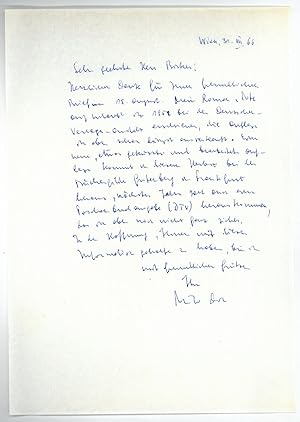 Wien, 31. VIII 66
Sehr geehrter Herr
herzlichen Dank für Ihren freundlichen
Brief vom 18. August. Mein Roman, "Tote
auf Urlaub" ist 1952 bei der Deutschen
Verlags-Anstalt erschienen, die Auflage
ist aber schon längst ausverkauft. Eine
neue, etwas gekürzte und bearbeitete Auf-
lage kommt in diesem Herbst bei der
Büchergilde Gutenberg in Frankfurt
heraus, nächstes Jahr soll auch eine
Taschenbuchausgabe (DTV) herauskommen,
das ist aber noch nicht ganz sicher.
In der Hoffnung, Ihnen mit dieser
Information geholfen zu haben, bin ich
mit freundlichen Grüßen
Ihr
Milo Dor